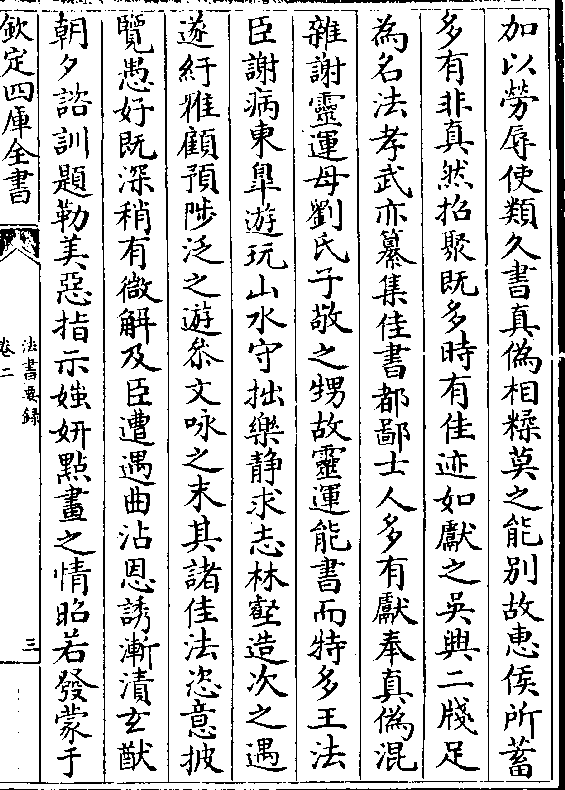 加以勞辱使類久書真偽相糅莫之能别故惠侯所蓄
多有非真然招聚既多時有佳迹如獻之吳興二牋足
為名法孝武亦纂集佳書都鄙士人多有獻奉真偽混
雜謝靈運母劉氏子敬之甥故靈運能書而特多王法
臣謝病東臯遊玩山水守拙樂静求志林壑造次之遇
遂紆雅顧預陟泛之遊參文咏之末其諸佳法恣意披
覽愚好既深稍有微解及臣遭遇曲沾恩誘漸漬玄猷
朝夕諮訓題勒美惡指示媸妍點畫之情昭若發蒙于
欽定四庫全書
法書要録
卷二
三